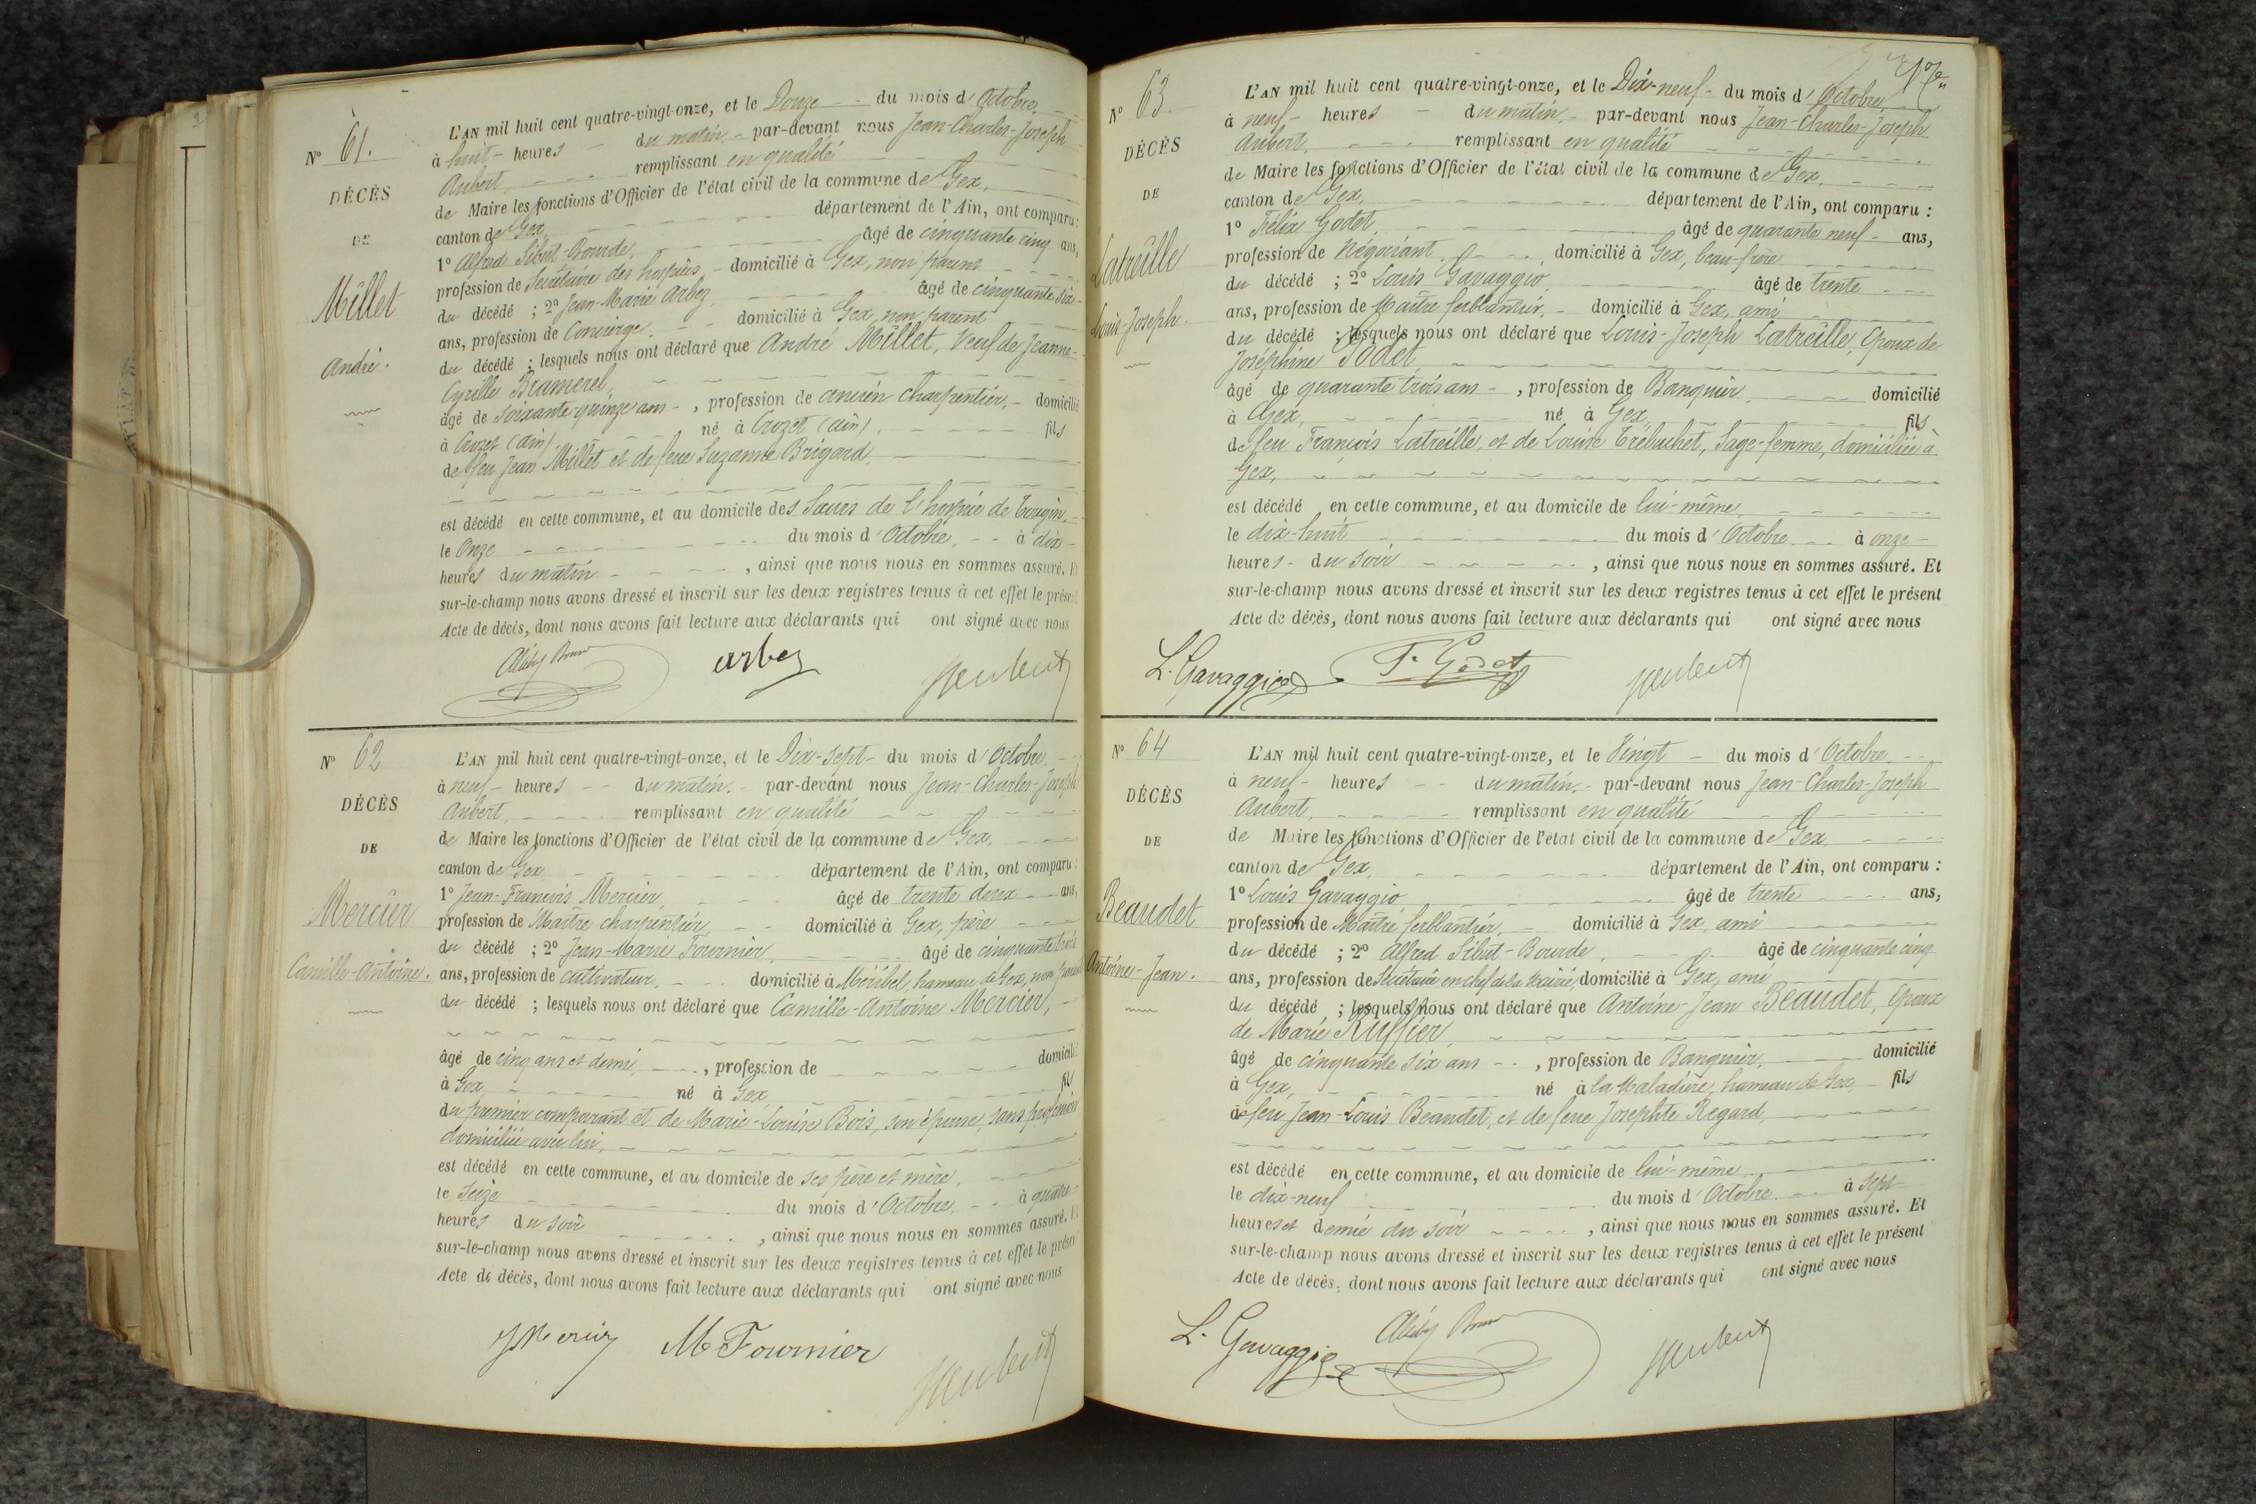 N° 61.
DÉCÈS
DE
Millet
André.
L'AN mil huit cent quatre-vingt-onze, et le Douze du mois d'Octobre
à huit heures du matin, par-devant nous Jean-Charles-Joseph
Aubert, remplissant en qualité
de Maire les fonctions d'Officier de l'état civil de la commune de Gex,
canton de Gex, département de l'Ain, ont comparu :
1° Alfred Sibut-Bourde, âgé de cinquante cinq ans,
profession de Secrétaire des hospices, domicilié à Gex, non parent
du décédé ; 2° Jean-Marie Arbez, âgé de cinquante six
ans, profession de Concierge, domicilié à Gex, non parent
du décédé ; lesquels nous ont déclaré que André Millet, Veuf de Jeanne-
Cyrille Bramerel,
âgé de soixante-quinze ans, profession de ancien charpentier, domicilié
à Crozet (Ain) né à Crozet (Ain), fils
de feu Jean Millet et de feue Suzanne Brigard,
est décédé en cette commune, et au domicile des Sœurs de l'hospice de Tougin,
le Onze du mois d'Octobre, à dix
heures du matin, ainsi que nous nous en sommes assuré. Et
sur-le-champ nous avons dressé et inscrit sur les deux registres tenus à cet effet le présent
Acte de décès, dont nous avons fait lecture aux déclarants qui ont signé avec nous
arbez
N° 62
DÉCÈS
DE
Mercier
Camille-Antoine.
L'AN mil huit cent quatre-vingt-onze, et le Dix-sept du mois d'Octobre,
à neuf heures du matin, par-devant nous Jean-Charles-Joseph
Aubert, remplissant en qualité
de Maire les fonctions d'Officier de l'état civil de la commune de Gex,
canton de Gex département de l'Ain, ont comparu :
1° Jean-François Mercier, âgé de trente deux ans,
profession de Maître charpentier, domicilié à Gex, père
du décédé ; 2° Jean-Marie Fournier, âgé de cinquante trois
ans, profession de cultivateur, domicilié à Méribel, hameau de Gex, non parent
du décédé ; lesquels nous ont déclaré que Camille-Antoine Mercier,
âgé de cinq ans et demi, profession de domicilié
à Gex né à Gex, fils
du premier comparant et de Marie-Louise Bois, son épouse, sans profession
domiciliée avec lui,
est décédé en cette commune, et au domicile de ses père et mère,
le seize du mois d'Octobre, à quatre
heures du soir, ainsi que nous nous en sommes assuré. Et
sur-le-champ nous avons dressé et inscrit sur les deux registres tenus à cet effet le présent
Acte de décès, dont nous avons fait lecture aux déclarants qui ont signé avec nous
M Fournier
N° 63
DÉCÈS
DE
Latreille
Louis-Joseph.
L'AN mil huit cent quatre-vingt-onze, et le Dix-neuf du mois d'Octobre,
à neuf heures du matin, par-devant nous Jean-Charles-Joseph
Aubert, remplissant en qualité
de Maire les fonctions d'Officier de l'état civil de la commune de Gex,
canton de Gex, département de l'Ain, ont comparu :
1° Félix Godet, âgé de quarante neuf ans,
profession de Négociant, domicilié à Gex, beau-frère
du décédé ; 2° Louis Gavaggio, âgé de trente
ans, profession de Maître ferblantier, domicilié à Gex, ami
du décédé ; lesquels nous ont déclaré que Louis-Joseph Latreille, Epoux de
Joséphine Godet
âgé de quarante trois ans, profession de Banquier, domicilié
à Gex, né à Gex, fils
de feu François Latreille, et de Louise Trébuchet, Sage-femme, domiciliée à
Gex,
est décédé en cette commune, et au domicile de lui-même,
le dix-huit du mois d'Octobre à onze
heures du soir, ainsi que nous nous en sommes assuré. Et
sur-le-champ nous avons dressé et inscrit sur les deux registres tenus à cet effet le présent
Acte de décès, dont nous avons fait lecture aux déclarants qui ont signé avec nous
L. Gavaggio F. Godet
N° 64
DÉCÈS
DE
Beaudet
Antoine-Jean.
L'AN mil huit cent quatre-vingt-onze, et le Vingt du mois d'Octobre
à neuf heures du matin, par-devant nous Jean-Charles-Joseph
Aubert, remplissant en qualité
de Maire les fonctions d'Officier de l'état civil de la commune de Gex
canton de Gex, département de l'Ain, ont comparu :
1° Louis Gavaggio âgé de trente ans,
profession de Maître ferblantier, domicilié à Gex, ami
du décédé ; 2° Alfred Sibut-Bourde, âgé de cinquante cinq
ans, profession de Secrétaire en chef de la Mairie, domicilié à Gex, ami
du décédé ; lesquels nous ont déclaré que Antoine-Jean Beaudet, Epoux
de Marie Ruffier,
âgé de cinquante six ans, profession de Banquier, domicilié
à Gex, né à la Maladière, hameau de Gex, fils
de feu Jean-Louis Beaudet, et de feue Josephte Regard,
est décédé en cette commune, et au domicile de lui-même
le dix-neuf du mois d'Octobre à sept
heures et demie du soir, ainsi que nous nous en sommes assuré. Et
sur-le-champ nous avons dressé et inscrit sur les deux registres tenus à cet effet le présent
Acte de décès, dont nous avons fait lecture aux déclarants qui ont signé avec nous
L. Gavaggio